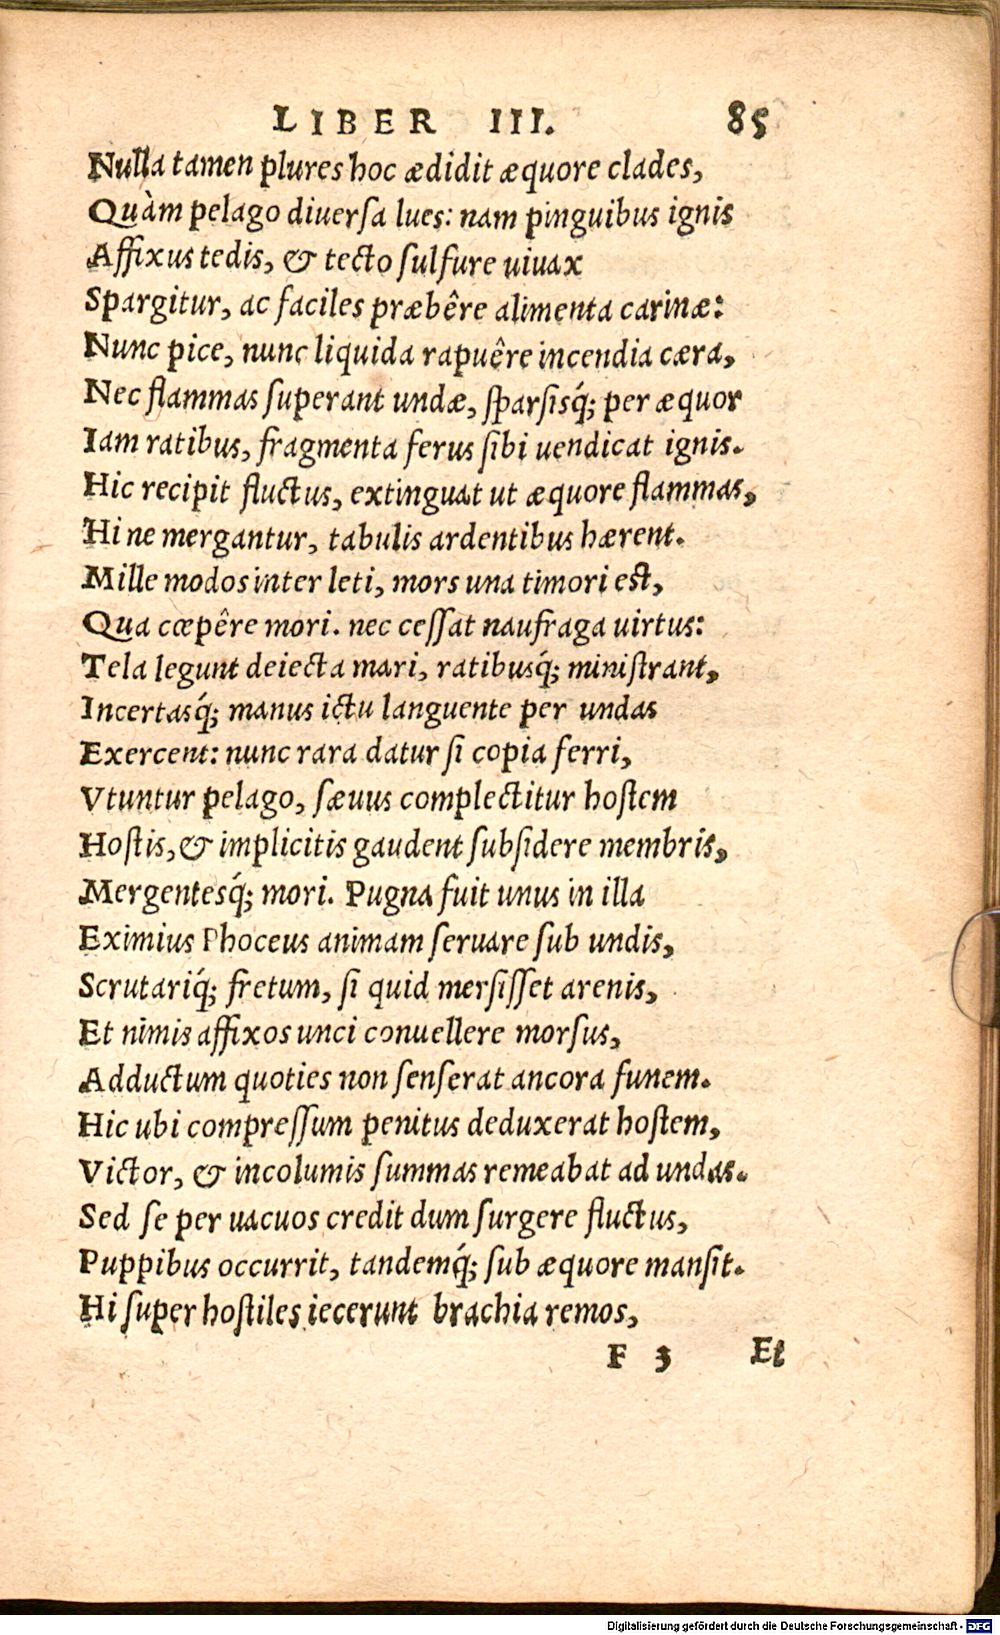 LIBER III. 85
Nulla tamen plures hoc ædidit æquore clades,
Quàm pelago diuersa lues: nam pinguibus ignis
Affixus tedis, & tecto sulfure uiuax
Spargitur, ac faciles præbêre alimenta carinæ:
Nunc pice, nunc liquida rapuêre incendia cæra,
Nec flammas superant undæ, sparsisq́; per æquor
Iam ratibus, fragmenta ferus sibi uendicat ignis.
Hic recipit fluctus, extinguat ut æquore flammas,
Hi ne mergantur, tabulis ardentibus hærent.
Mille modos inter leti, mors una timori est,
Qua cœpêre mori. nec cessat naufraga uirtus:
Tela legunt deiecta mari, ratibusq́; ministrant,
Incertasq́; manus ictu languente per undas
Exercent: nunc rara datur si copia ferri,
Vtuntur pelago, sæuus complectitur hostem
Hostis, & implicitis gaudent subsidere membris,
Mergentesq́; mori. Pugna fuit unus in illa
Eximius Phoceus animam seruare sub undis,
Scrutariq́; fretum, si quid mersisset arenis,
Et nimis affixos unci conuellere morsus,
Adductum quoties non senserat ancora funem.
Hic ubi compressum penitus deduxerat hostem,
Victor, & incolumis summas remeabat ad undas.
Sed se per uacuos credit dum surgere fluctus,
Puppibus occurrit, tandemq́; sub æquore mansit.
Hi super hostiles iecerunt brachia remos,
F 3 Et
Digitalisierung gefördert durch die Deutsche Forschungsgemeinschaft - DFG